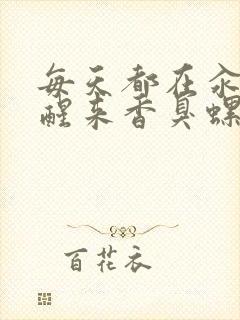 每天都在汆
醒来香臭螺
百花衣